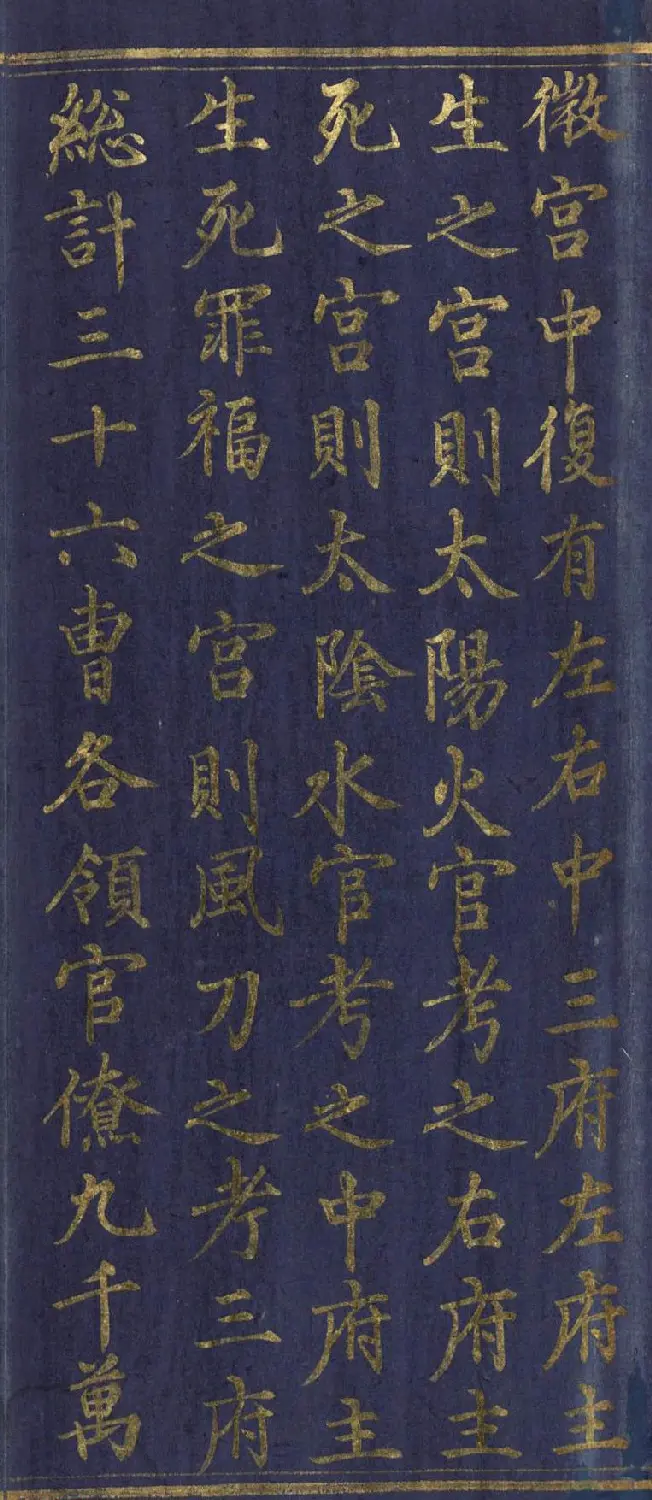 微宮中復有左右中三府左府主
生之宮則太陽火官考之右府主
死之宮則太陰水官考之中府主
生死罪福之宮則風刀之考三府
総計三十六曹各領官僚九千萬